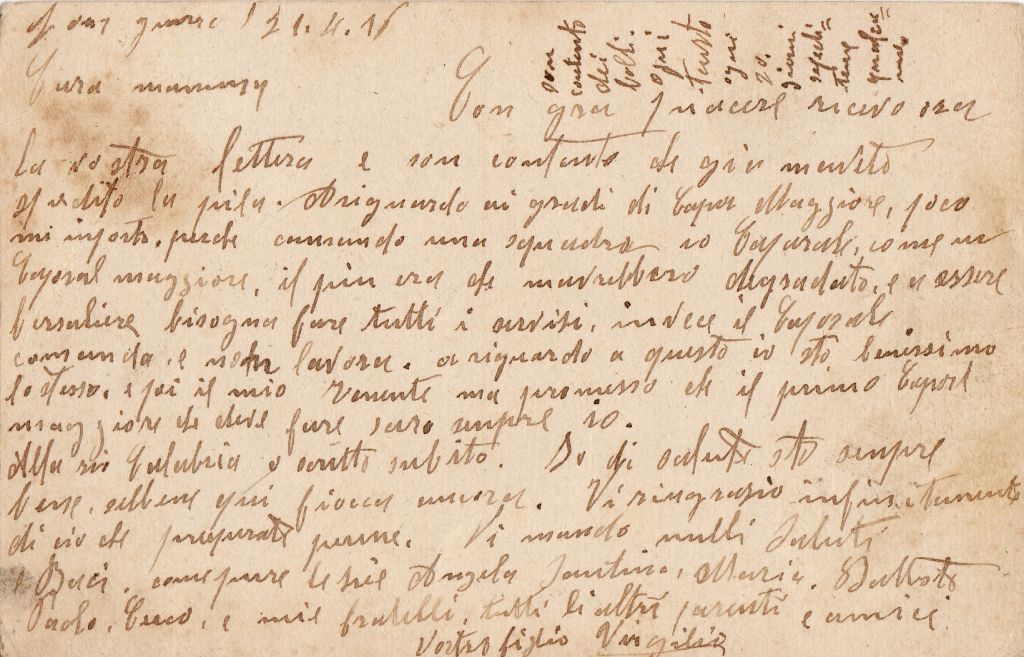 Zona guerra 21.4.16
Cara mamma
son
contento
dei
bolli.
ogni
tanto
ogni
20
giorni
spedi=
teme
qualcu=
no.
Con gra piacere ricevo ora
la vostra lettera e son contento che gia mavete
spedito la pila. Ariguardo ai gradi di Capor Maggiore, poco
mi inporta, perche comando una squadra io Caporale, come un
Caporal maggiore, il piu era che mavrebbero degradato, e a essere
bersaliere bisogna fare tutti i servisi, invece il Caporale
comanda, e non lavora. a riguardo a questo io sto benissimo
lo stesso, e poi il mio Tenente ma promesso che il primo Caporal
maggiore che deve fare saro senpre io.
Alla zia Calabria o scritto subito. Io di salute sto senpre
bene, sebbene qui fiocca ancora. Vi ringrazio infinitamente
di cio che preparate perme. Vi mando mille Saluti
e Baci, comepure le zie Angela Santina, Maria, Battista
Paolo, Ceco, e miei fratelli, tutti li altri parenti e amici
Vostro figlio Virgilio